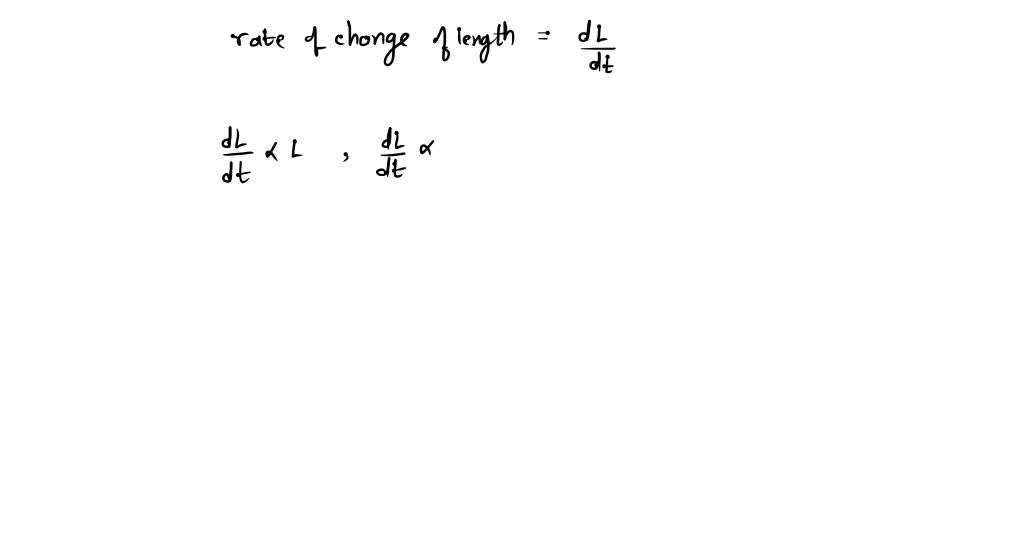 rate of change of length = dL/dt
dL/dt ∝ L , dL/dt ∝